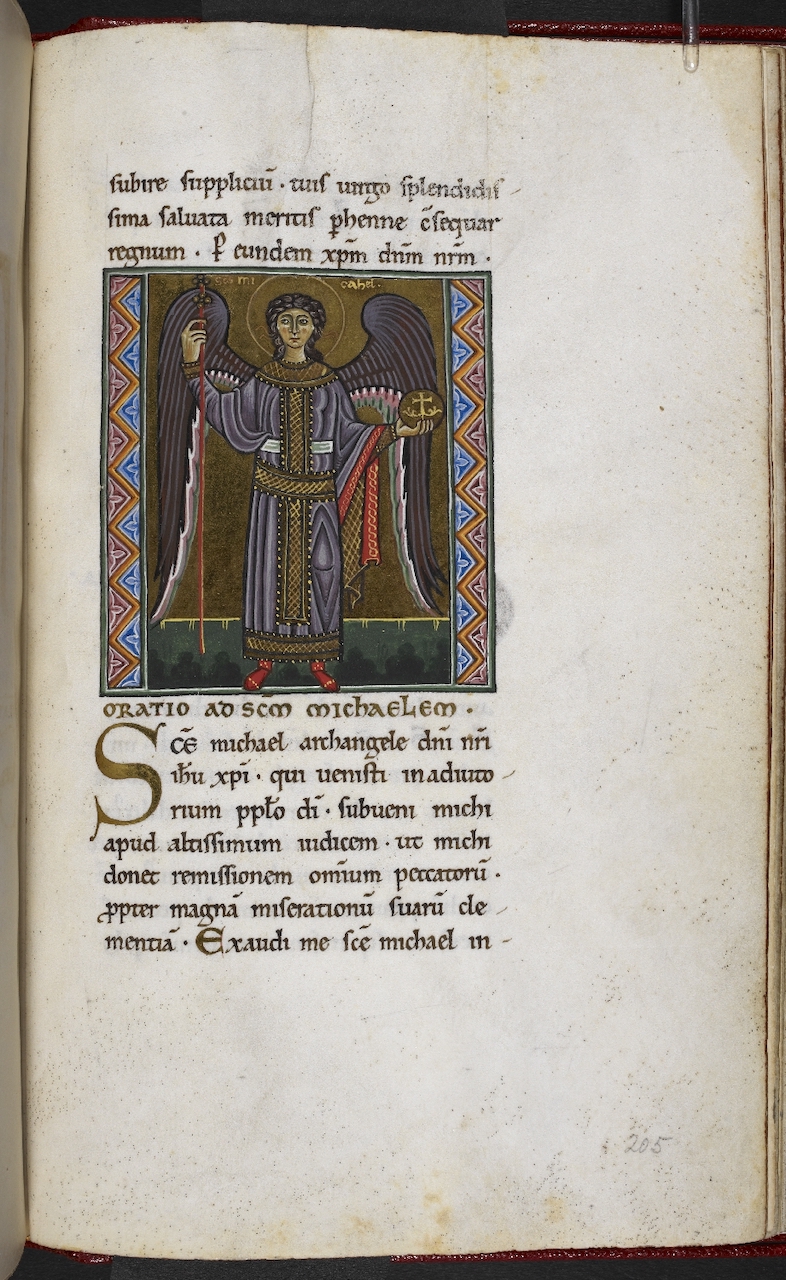 subire suppliciū · tuis uirgo splendidis-
sima saluata meritis ꝑhenne c̄sequar
regnum · P̄ eundem xp̄m dn̄m nr̄m ·
SCS MI CAHEL·
ORATIO AD SC̄M MICHAELEM ·
SCE̅ michael archangele dn̄i nr̄i
ih̄u xp̄i · qui uenisti in adiuto-
rium ppl̄o dī · subueni michi
apud altissimum iudicem · ut michi
donet remissionem om̄ium peccatorū ·
ꝓpter magnā miserationū suarū cle-
mentiā · Exaudi me sc̄e michael in-
205